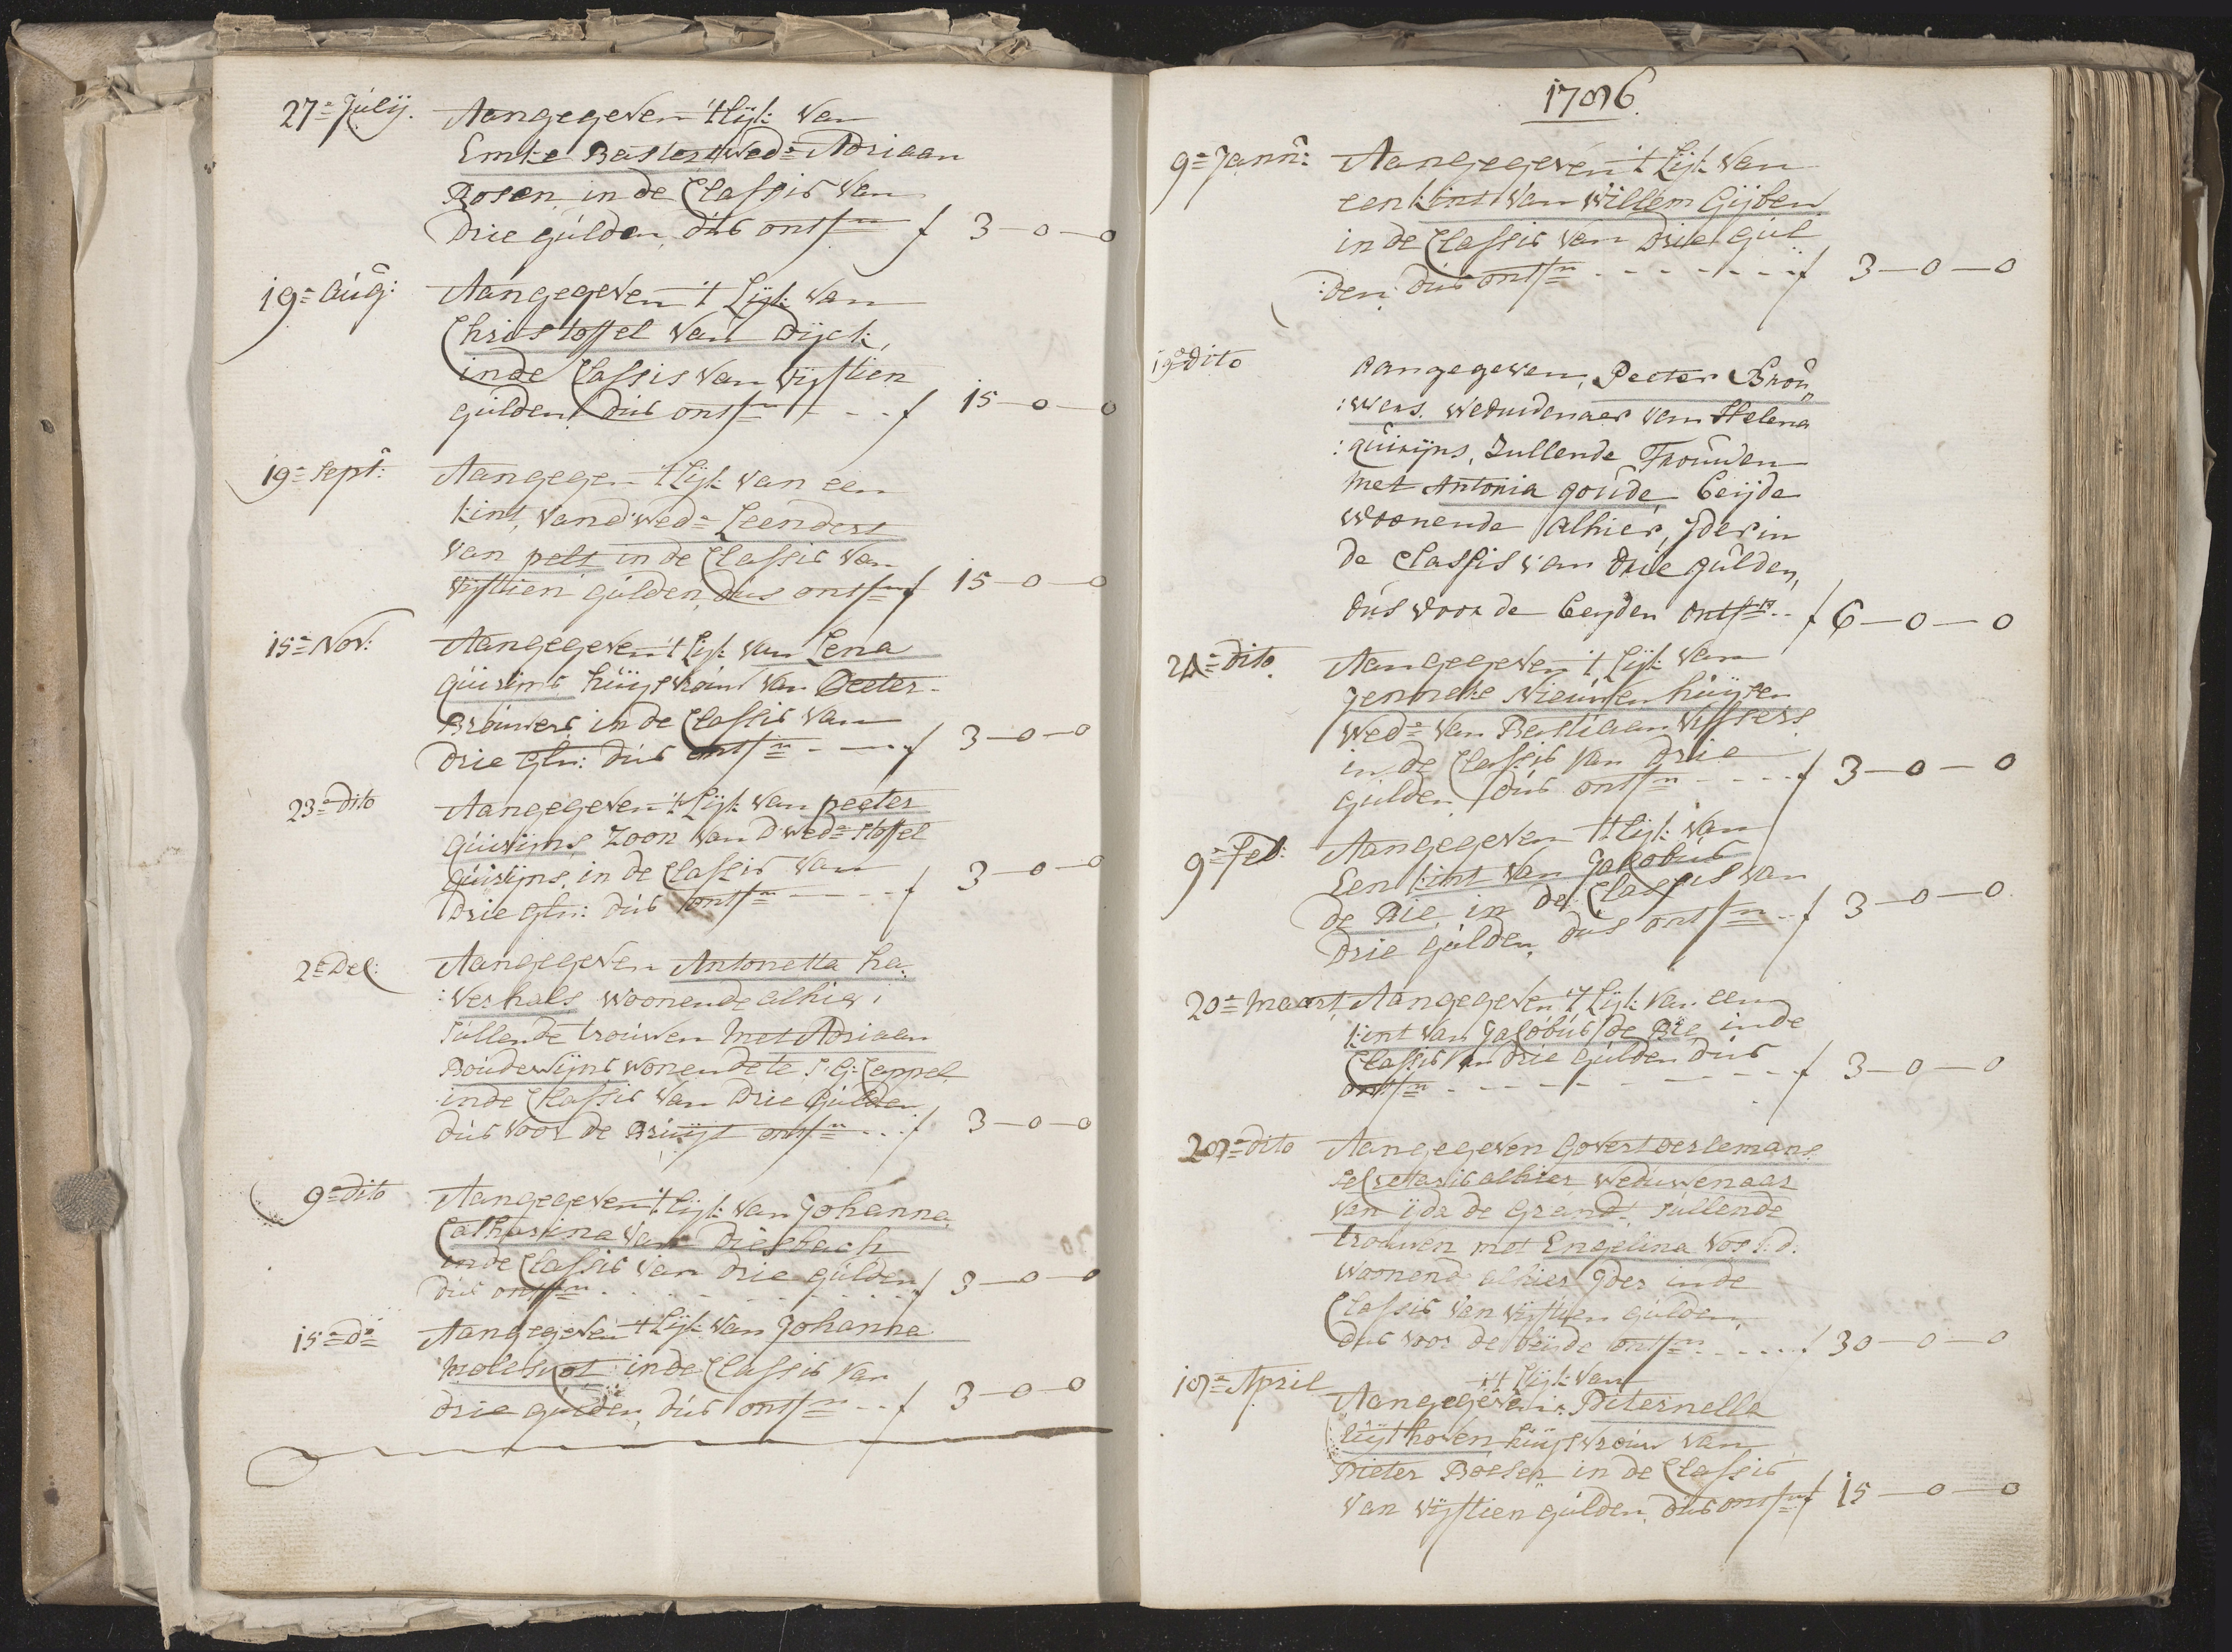 27=Julij. Aangegeven 't Lijk van
Emke Basters wed=e Adriaan
Rosen in de Classis van
drie gulden dus ontf=n f 3-0-0
19= aug: Aangegeven 't Lijk van
Christoffel van Dijck,
inde Classis van vijftien
gulden dus ontf=n - - f 15-0-0
19= Sept: Aangegen 't Lijk van een
kint, vand' wed=e Leendert
van pelt in de Classis van
vijftien gulden, dus ontf=n f 15-0-0
15= Nov: Aangegeven 't Lijk van Lena
Quirijns huijsvrouw van Peeter
Brouwers in de Classis van
drie Gln: dus ontf=n - - f 3-0-0
23= dito Aangegeven 't Lijk van peeter
Quirijns Zoon van d' wed=e Stoffel
Quirijns, in de Classis van
drie gln: dus ontf=n - - - f 3-0-0
2= Dec: Aangegeven Antonetta ha:
:verhals woonende alhier,
sullende trouwen met Adriaan
Boudewijns wonende te S G: Cappel
inde Classis van Drie Gulden
dus voor de Bruijt ontf=n - - f 3-0-0
9= dito Aangegeven 't Lijk van Johanna
Catharina van Diesbach
inde Classis van drie gulden
dus ontf=n - - - - f 3-0-0
15= d=o Aangegeven 't Lijk van Johanna
in de Classis van
drie gulden, dus ontf=n - - f 3-0-0
1786.
9= Jann: Aangegeven 't Lijk van
een kint van Willem Gijben
in de Classis van drie gul
:den: dus ontf=n - - - - - - f 3-0-0
19= dito Aangegeven, Peeter Brou„
:wers. weduwenaer van Helena
:quirijns, Zullende Trouwen
met Antonia goude, beijde
woonende alhier, Jder in
de Classis van drie gulden,
dus voor de beijden ontf=n - - f 6-0-0
24= dito. Aangegeven 't Lijk van
Jenneke Nieuwenhuijsen
wed=e van Bastiaan Vissers
in de Classis van drie
gulden dus ontf=n - - - - f 3-0-0
9= Feb: Aangegeven 't Lijk van
Een kint van Jakobus
de Bie in de Classis van
drie gulden, dus ontf=n - - f 3-0-0
20= maart Aangegeven 't Lijk van een
kint van Jacobus de Bie inde
Classis van drie gulden dus
ontf=n - - - - - - - - f 3-0-0
28= dito Aangegeven Govert Oerlemans
secretaris alhier weduwenaar
van ijda de Grand. sullende
trouwen met Engelina Vos J: d.
woonende alhier Jder inde
Classis van vijftien gulden,
dus voor de beijde ontf=n - - - - f 30-0-0
18= April 't Lijk van
Aangegeven Piternella
huijsvrouw van
Pieter Boeser in de Classis
van vijftien gulden, dus ontf=n f 15-0-0